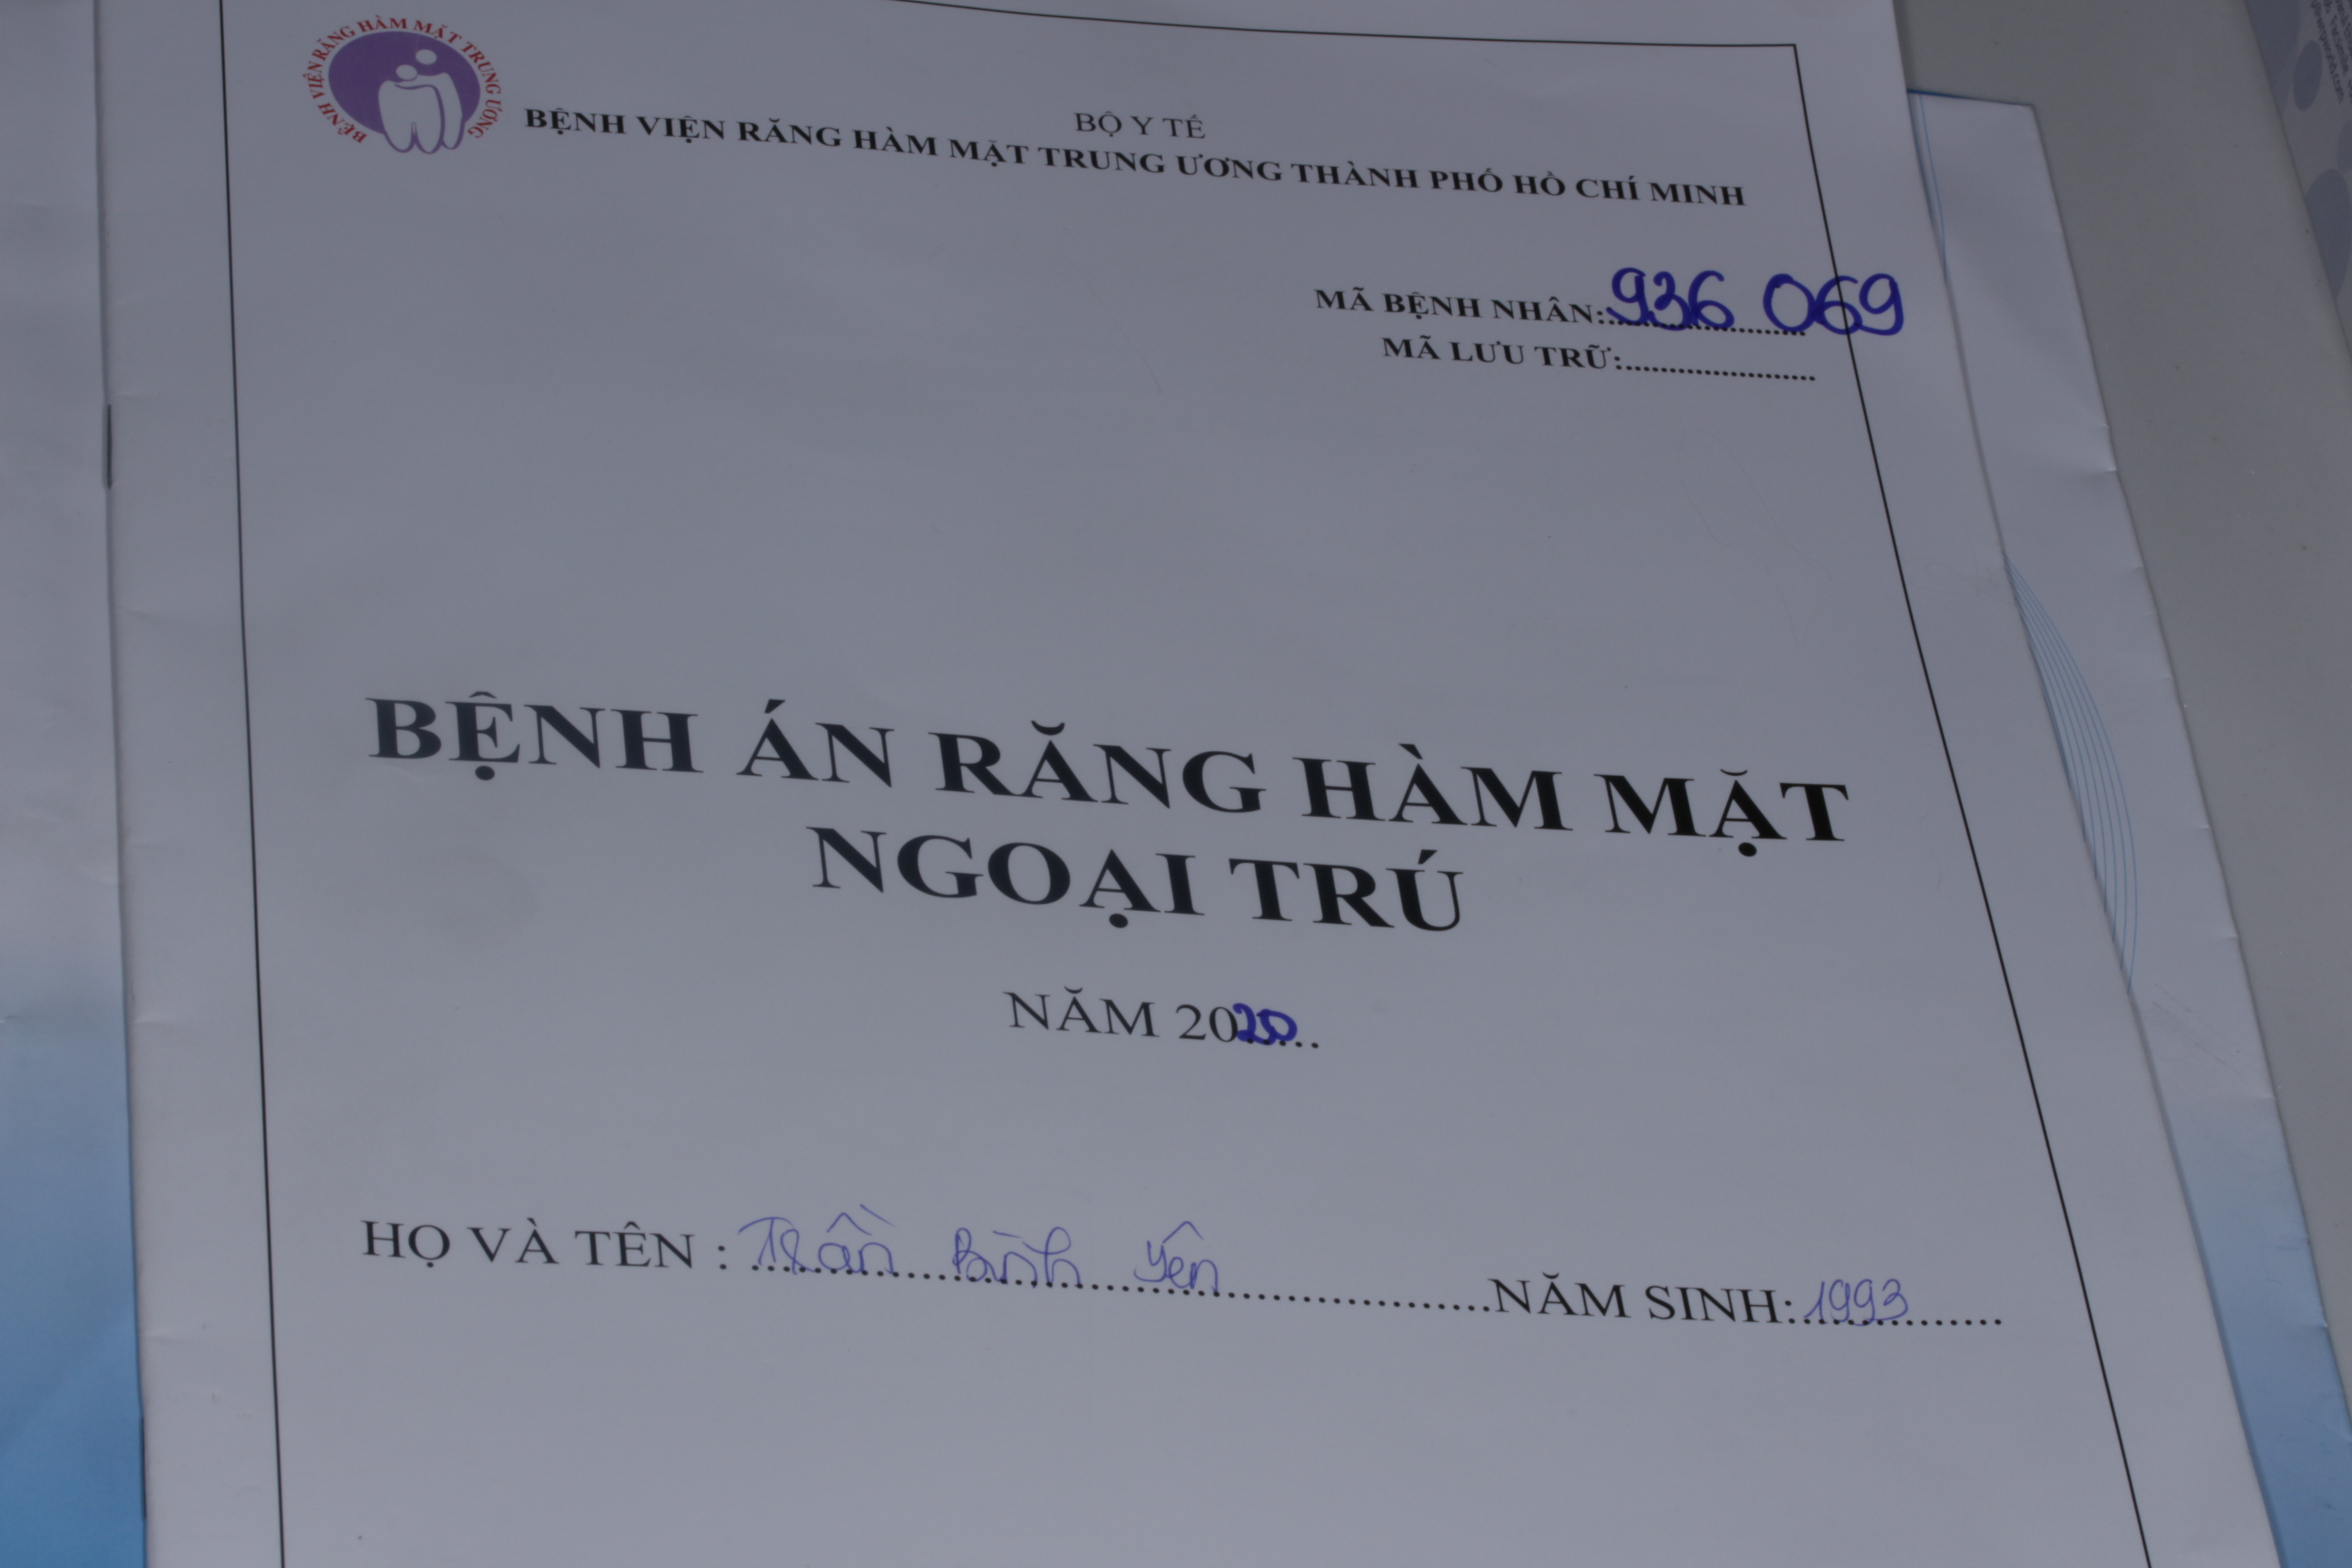 BỆNH VIỆN RĂNG HÀM MẶT TRUNG ƯƠNG
BỘ Y TẾ
BỆNH VIỆN RĂNG HÀM MẶT TRUNG ƯƠNG THÀNH PHỐ HỒ CHÍ MINH
MÃ BỆNH NHÂN:936 069
MÃ LƯU TRỮ:......................
BỆNH ÁN RĂNG HÀM MẶT
NGOẠI TRÚ
NĂM 2020.....
HỌ VÀ TÊN : Trần Bình Yên NĂM SINH: 1993